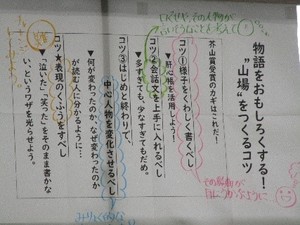 物語をおもしろくする!
"山場"をつくるコツ
芥山賞受賞のカギはこれだ!
コツ①様子をくわしく書くべし
▼肝心帳を活用しよう!
コツ②会話文を上手に入れるべし
▼多すぎても、少なすぎてもだめ。
コツ③はじめと終わりで、
中心人物を変化させるべし
▼何が変わったのか、なぜ変わったのか
が読む人に分かるように…
コツ★表現のくふうをすべし
▼「泣いた」「笑った」をそのまま書かな
い、というワザを光らせよう。